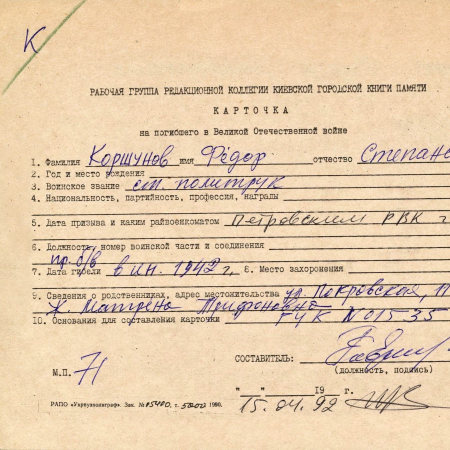 К
РАБОЧАЯ ГРУППА РЕДАКЦИОННОЙ КОЛЛЕГИИ КИЕВСКОЙ ГОРОДСКОЙ КНИГИ ПАМЯТИ
КАРТОЧКА
на погибшего в Великой Отечественной войне
1. Фамилия Коршунов имя Фёдор отчество Степано
2. Год и место рождения
3. Воинское звание ст. политрук
4. Национальность, партийность, профессия, награды
5. Дата призыва и каким райвоенкоматом Петровским РВК г
6. Должность, номер воинской части и соединения
пр. б/в
7. Дата гибели в ин. 1942 г. 8. Место захоронения
9. Сведения о родственниках, адрес местожительства ул. Покровская, 11
ж. Матрена Трифоновна
10. Основания для составления карточки ГУК N 01535
СОСТАВИТЕЛЬ:
(должность, подпись)
М.П. 71
" " 19 г.
15.04.92
РАПО «Укрвузполиграф». Зак. № 05400, т. 5000 1990.